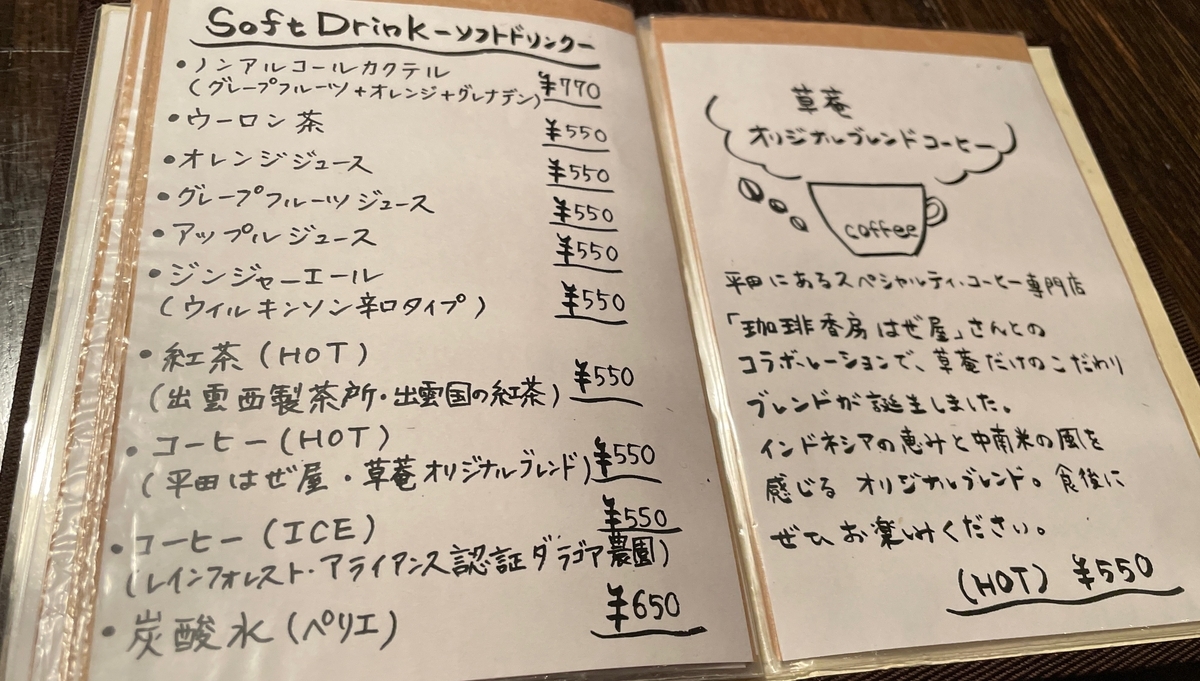 Soft Drink-ソフトドリンク-
•ノンアルコールカクテル
(グレープフルーツ+オレンジ+グレナデン) ¥770
•ウーロン茶 ¥550
•オレンジジュース ¥550
•グレープフルーツジュース ¥550
•アップルジュース ¥550
•ジンジャーエール
(ウィルキンソン辛口タイプ) ¥550
•紅茶(HOT)
(出雲西製茶所・出雲国の紅茶) ¥550
•コーヒー(HOT)
(平田はぜ屋・草菴オリジナルブレンド) ¥550
•コーヒー(ICE) ¥550
(レインフォレスト・アライアンス認証ダラゴア農園)
•炭酸水(ペリエ) ¥650
草菴
オリジナルブレンドコーヒー
coffee
平田にあるスペシャルティ・コーヒー専門店
「珈琲香房はぜ屋」さんとの
コラボレーションで、草菴だけのこだわり
ブレンドが誕生しました。
インドネシアの恵みと中南米の風を
感じる オリジナルブレンド。食後に
ぜひお楽しみください。
(HOT) ¥550